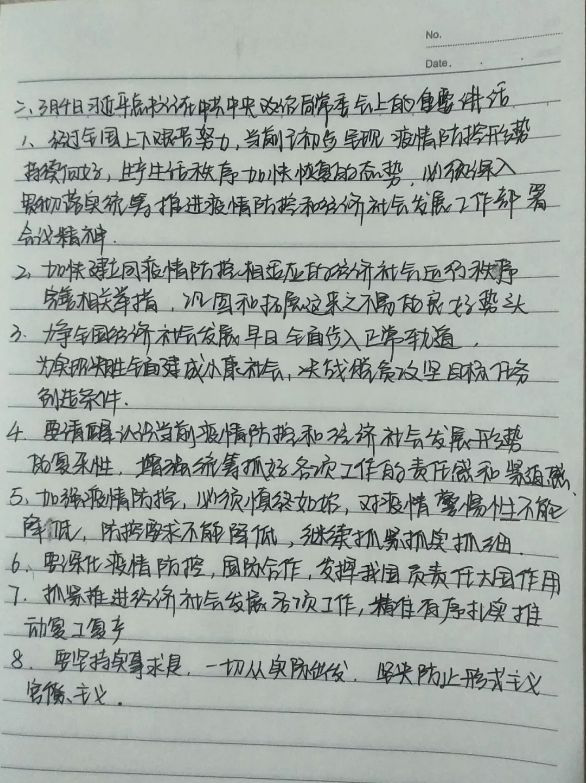 No.
Date.
二、3月4日习近平总书记在中共中央政治局常委会上的重要讲话
1、经过全国上下艰苦努力，当前已初步呈现 疫情防控形势
持续向好，生产生活秩序加快恢复的态势，必须深入
贯彻落实统筹推进疫情防控和经济社会发展工作部署
会议精神.
2、加快建立同疫情防控相适应的经济社会运行秩序
完善相关举措，巩固和拓展这来之不易的良好势头
3、力争全国经济社会发展早日全面步入正常轨道，
为实现决胜全面建成小康社会，决战脱贫攻坚目标任务
创造条件.
4、要清醒认识当前疫情防控和经济社会发展形势
的复杂性，增强统筹抓好各项工作的责任感和紧迫感.
5、加强疫情防控，必须慎终如始，对疫情警惕性不能
降低，防控要求不能降低，继续抓紧抓实抓细.
6、要深化疫情防控，国际合作，发挥我国负责任大国作用
7、抓紧推进经济社会发展各项工作，精准有序扎实推
动复工复产
8、要坚持实事求是，一切从实际出发，坚决防止形式主义
官僚主义.